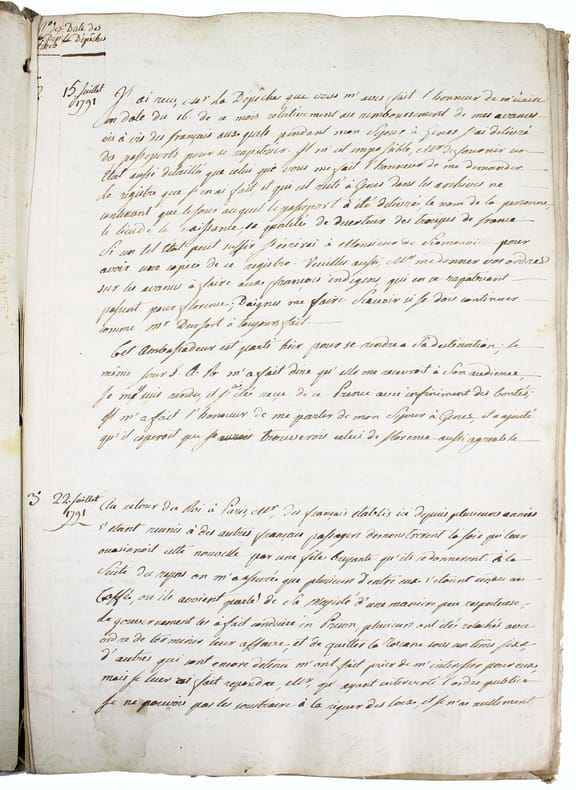 Nos des Dépêches
Date des
la Dépêches
15 Juillet
1791
J'ai reçu, Mr. la Dépêche que vous m'avez fait l'honneur de m'écrire
en date du 16. de ce mois relativement au remboursement de mes avances
vis à vis des français auxquels pendant mon sejour à Genes j'ai délivré
des passeports pour se rapatrier. Il m'est impossible, Mr. de fournir un
Etat aussi détaillé que celui que vous me fait l'honneur de me demander.
Le registre que j'en ai fait et qui est resté à Genes dans les archives ne
contenant que le jour auquel le passeport à été délivré, le nom de la personne,
le lieu de naissance, sa qualité de deserteur des troupes de france.
Si un tel Etat peut suffir j'ecrirai à Monsieur de Semonville pour
avoir une copie de ce registre. Veuillez aussi, Mr. me donner vos ordres
sur les avances à faire aux françois indigens, qui en se rapatriant
passent pour florence; Daignez me faire sçavoir si je dois continuer
comme Mr Durfort à toujours fait.
Cet Ambassadeur est parti hier pour se rendre a sa destination; le
même jour S. A. R. m'a fait dire qu'elle me recevroit à son audience,
je m'y suis rendu, et j'ai été reçu de ce Prince avec infiniment des bontés;
Il m'a fait l'honneur de me parler de mon sejour à Genes, et a ajouté
qu'il esperoit que je trouverois celui de florence aussi agreable
3 22. Juillet
1791
Au retour du Roi à Paris, Mr., des français etablis ici depuis plusieurs années
s'etant reunis à des autres français passagers demontrerent la joie qui leur
ocasionoit cette nouvelle par une fête bruyante qu'ils se donnerent. à la
Suite du repas on m'a assuré que plusieurs d'entr'eux s'etoient rendus au
Caffé, ou ils avoient parlé de Sa Majesté d'une maniere peu respectueuse,
Le gouvernement les à fait conduire en Prison plusieurs ont été relachés avec
ordre de terminer leur affaire, et de quitter la Toscane sous un tems fixé,
d'autres qui sont encore detenu m'ont fait prier de m'interesser pour eux,
mais je leur ai fait repondre, Mr. qui ayant interverti l'ordre public
je ne pouvois pas les soustraire à la rigueur des loix, et je n'ai nullement